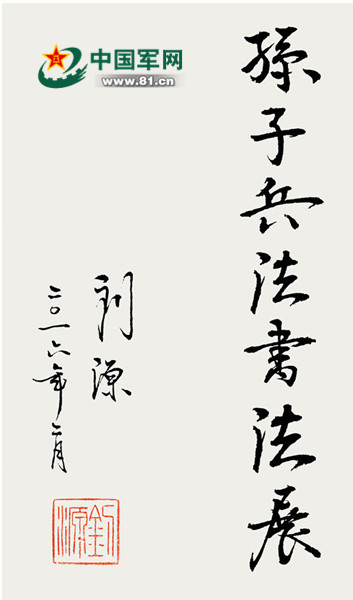 中国军网
www.81.cn
孫子兵法書法展
刘源
二〇一六年二月
劉源